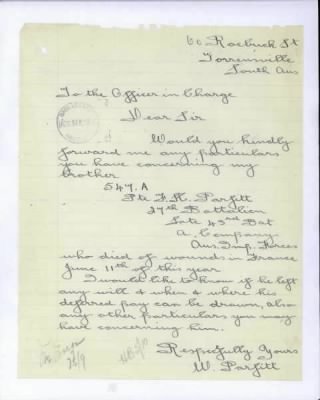 60 Roebuck St
Torrensville
South Aus
To the Officer in Charge
Dear Sir
Would you kindly
forward me any particulars
you have concerning my
brother
547. A
Pte F. H. Parfitt
27th Battalion
Late 43rd Bat
A. Company
Aus. Imp. Forces
who died of wounds in France
June 11th of this year
I would like to know if he left
any will & when & where his
deferred pay can be drawn, also
any other particulars you may
have concerning him.
Respecfully Yours
W. Parfitt
26/9